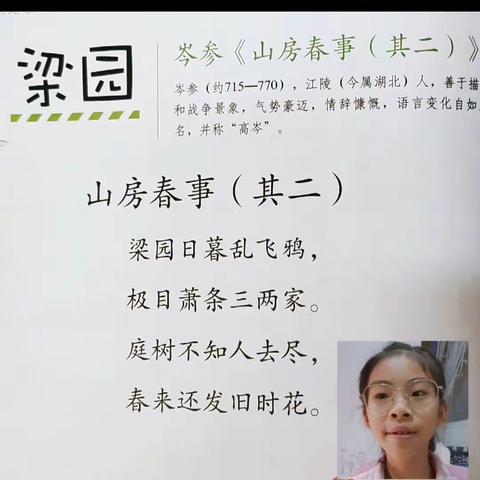 梁园
岑参《山房春事（其二）》
岑参（约715—770），江陵（今属湖北）人，善于描
和战争景象，气势豪迈，情辞慷慨，语言变化自如
名，并称“高岑”。
山房春事（其二）
梁园日暮乱飞鸦，
极目萧条三两家。
庭树不知人去尽，
春来还发旧时花。